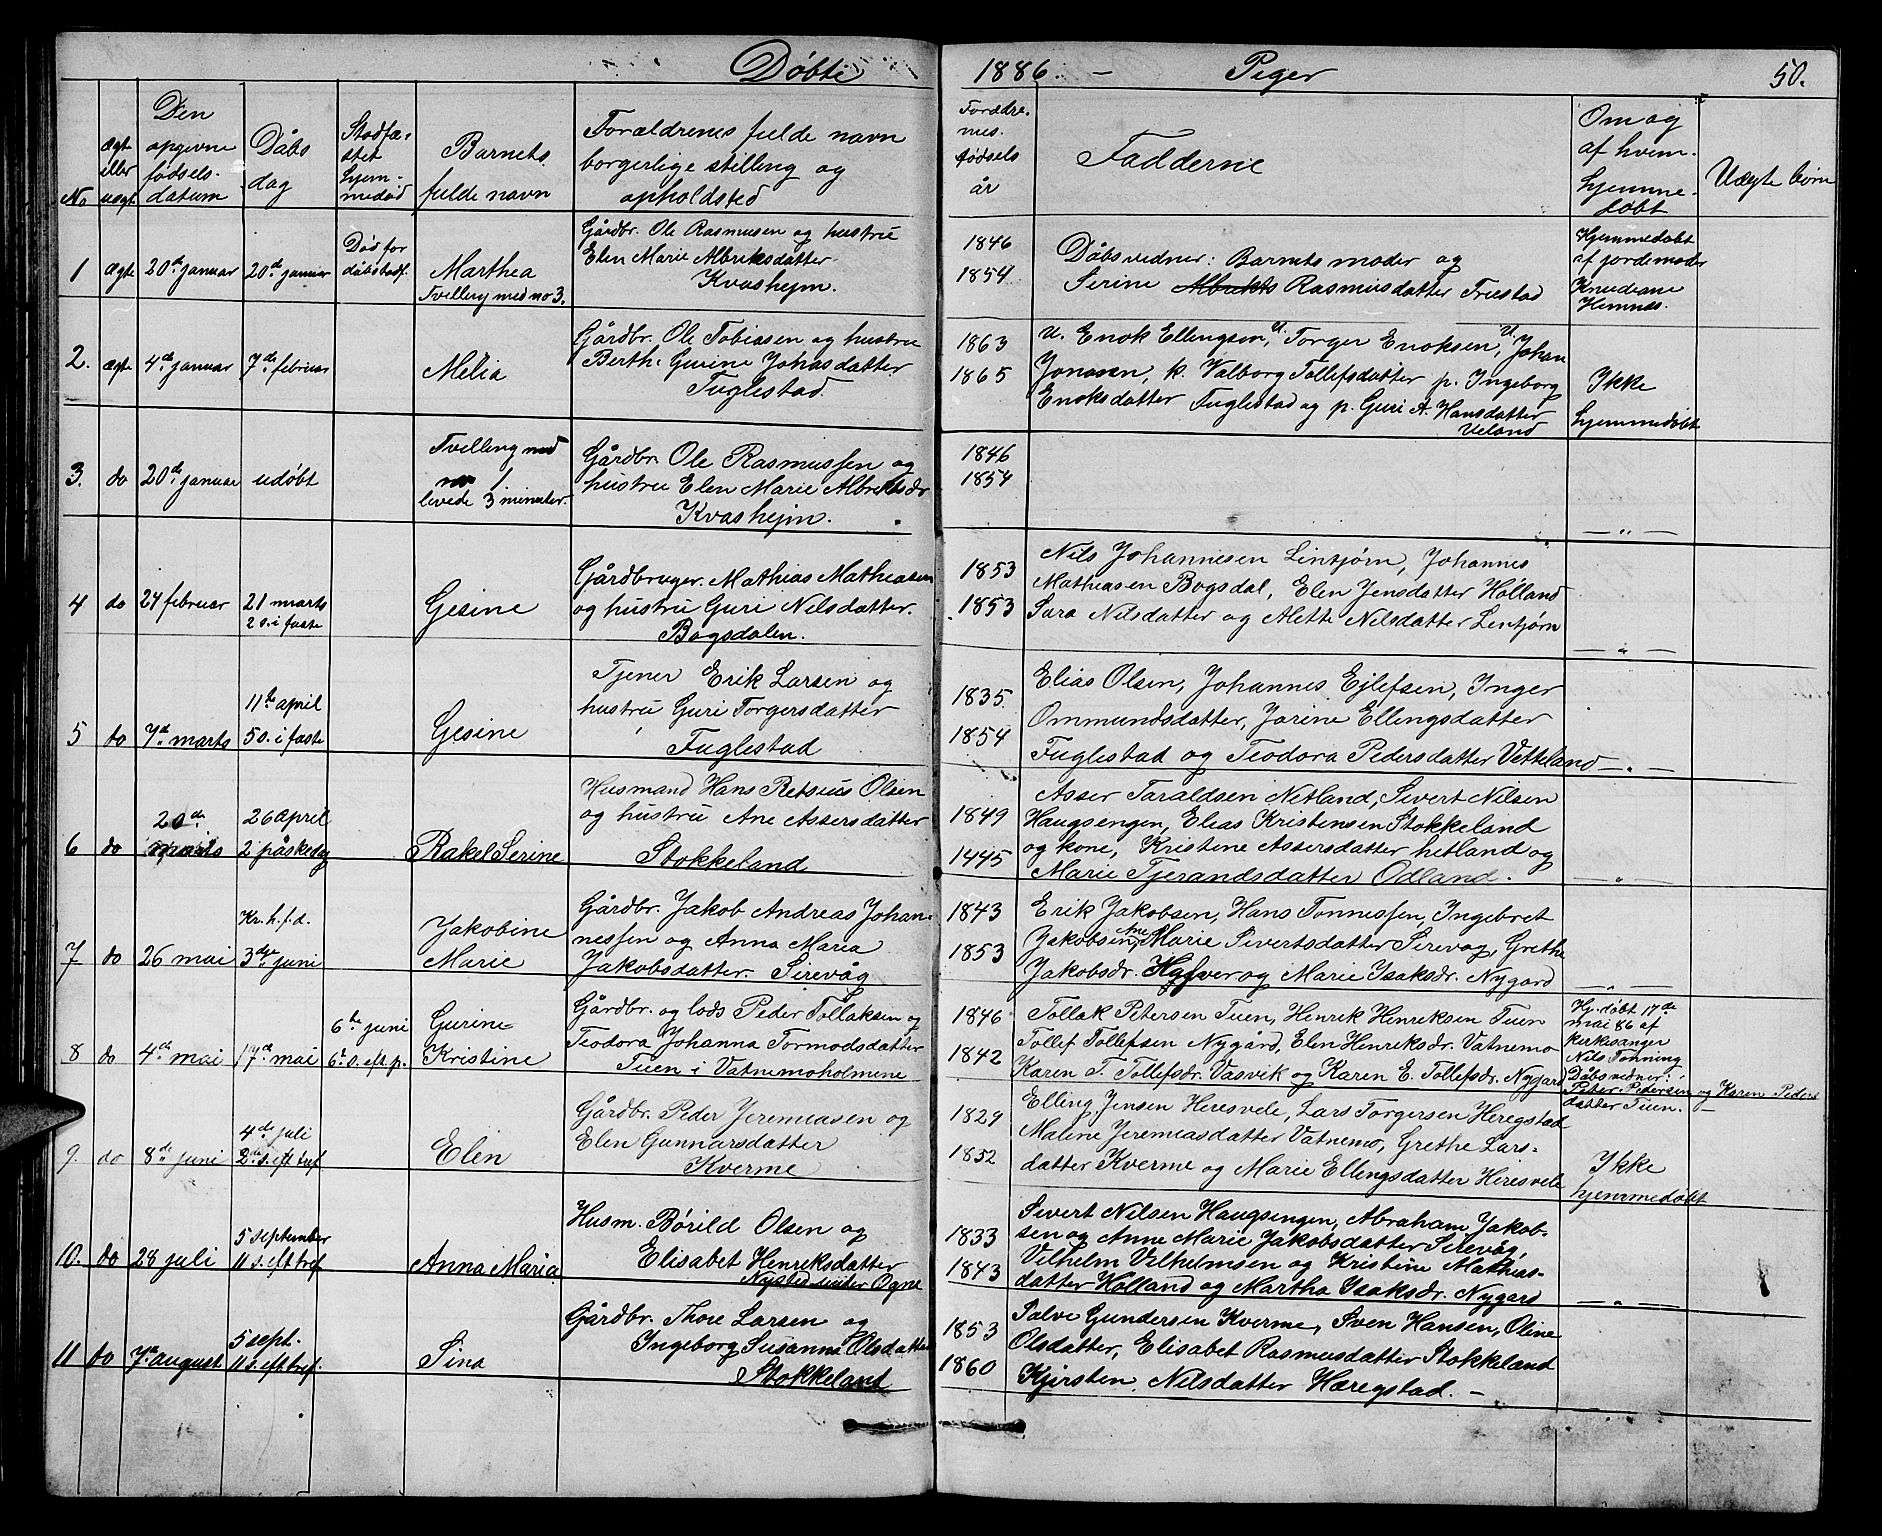 Døbte 1886. – Piger 50.
No
ægt eller uægt
Den opgivne fødsels-datum
Dåbs dag
Stadfæ-stet hjem-medåb
Barnets fulde navn
Forældrenes fulde navn
borgerlige stilling og
opholdsted
Forældre-nes fødsels år
Fadderne
Om og af hvem hjemme-døbt
Uægte børn
1 ægte 20de januar 20de januar Død før dåbstadf. Marthea
Tvilling med no 3.
Gårdbr. Ole Rasmusen og hustru
Elen Marie Albriksdatter
Kvashejm.
1846
1854
Dåbsvidner: Barnets moder og
Serine Rasmusdatter Friestad
Hjemmedøbt
af jordemoder
Knudiane
Hemnes.
2. ægte 4de januar 7de februar Melia
Gårdbr. Ole Tobiasen og hustru
Berth. Gurine Johasdatter
Fuglestad.
1863
1865
u. Enok Ellingsen, u. Torger Enoksen, u. Johan
Jonasen, k. Valborg Tollefsdatter p. Ingeborg
Enoksdatter Fuglestad og p. Guri A. Hansdatter
Ueland
Ikke
hjemmedøbt
3. do 20de januar udøbt
Tvilling med
no 1
levede 3 minuter.
Gårdbr. Ole Rasmussen og
hustru Elen Marie Albrektsdr
Kvashejm.
1846
1854
— „ —
4 do 24 februar 21 marts
2 s. i faste
Gesine
Gårdbruger. Mathias Mathiasen
og hustru Guri Nilsdatter.
Bogsdalen.
1853
1853
Nils Johannesen Lintjørn, Johannes
Mathiasen Bogsdal, Elen Jensdatter Hølland
Sara Nilsdatter og Alette Nilsdatter Lintjørn
— „ —
5 do 7de marts 11te april
5 s. i faste
Gesine
Tjener Erik Larsen og
hustru Guri Torgersdatter
Fuglestad
1835.
1854
Elias Olsen, Johannes Ejlefsen, Inger
Ommundsdatter, Jorine Ellingsdatter
Fuglestad og Teodora Pedersdatter Vetteland
— „ —
6 do 20de marts 26 april
2 påskedg
Rakel Serine
Husmand Hans Retsius Olsen
og hustru Ane Assersdatter
Stokkeland
1849
1445
Asser Taraldsen Netland, Sivert Nilsen
Haugsengen, Elias Kristensen Stokkeland
og kone, Kristine Assersdatter hetland og
Marie Tjerandsdatter Odland.
— „ —
7 do 26 mai Kr. h. f. d.
3die juni
Jakobine
Marie
Gårdbr. Jakob Andreas Johan-
nessen og Anna Maria
Jakobsdatter. Sirevåg
1843
1853
Erik Jakobsen, Hans Tønnessen, Ingebret
Jakobsen, Ane Marie Sivertsdatter Sirevåg, Grethe
Jakobsdr. og Marie Isaksdr. Nygård
— „ —
8 do 4de mai 17de mai 6te juni
6 s. eft. p.
Gurine
Kristine
Gårdbr. og lods Peder Tollaksen og
Teodora Johanna Tormodsdatter
Tuen i Vatnemoholmene
1846
1842
Tollak Petersen Tuen, Henrik Henriksen Tuen
Tollef Tollefsen Nygård, Elen Henriksdr. Vatnemo
Karen T. Tollefsdr. Vasvik og Karen E. Tollefsdr. Nygård
Hj. døbt 17de
mai 86 af
kirkesanger
Nils Tonning
Dåbsvidner:
Peter Pedersen og Karen Peders
datter Tuen. —
9. do 8de juni 4de juli
2de s. eft tref
Elen
Gårdbr. Peder Jeremiasen og
Elen Gunnarsdatter
Kverme
1829
1852
Elling Jensen Heresvele, Lars Torgersen Heregstad
Malene Jeremiasdatter Vatnemo, Grethe Lars-
datter Kverme og Marie Ellingsdatter Hiresvele
Ikke
hjemmedøbt
10. do 28 juli 5 september
11 s. eft tref
Anna Maria
Husm. Børild Olsen og
Elisabet Henriksdatter
Nysted under Ogne
1833
1843
Sivert Nilsen Haugsengen, Abraham Jakob-
sen og Anne Marie Jakobsdatter Sirevåg,
Vilhelm Vilhelmsen og Kristine Mathias-
datter Hølland og Martha Isaksdr. Nygård
— „ —
11 do 7de august 5 sept.
11 s. eft tref.
Sina
Gårdbr. Thore Larsen og
Ingeborg Susanna Olsdatter
Stokkeland
1853
1860
Salve Gundersen Kverme, Sven Hansen, Oline
Olsdatter, Elisabet Rasmusdatter Stokkland
Kjirsten Nilsdatter Hæregstad. —